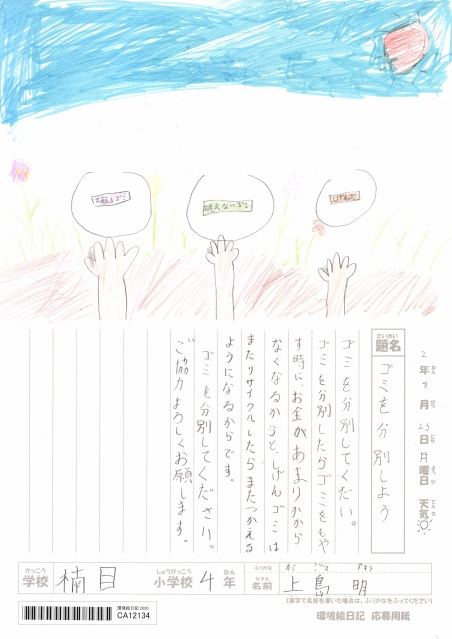 燃えるゴミ
燃えないゴミ
しげんゴミ
2年 月23日月曜日 天気
だいめい
題名
ゴミを分別しよう
ゴミを分別してくだい。
ゴミを分別したらゴミをもや
す時に、お金があまりかから
なくなるからと、しげんゴミは
またリサイクルしたらまたつかえる
ようになるからです。
ゴミを分別してください。
ご協力よろしくお願します。
がっこう
学校
楠目
しょうがっこう
小学校
4
ねん
年
ふりがな
なまえ
名前
かみ じま あきら
上島 明
(漢字で名前を書いた場合は、ふりがなをふってください)
環境絵日記2020
CA12134
環境絵日記 応募用紙